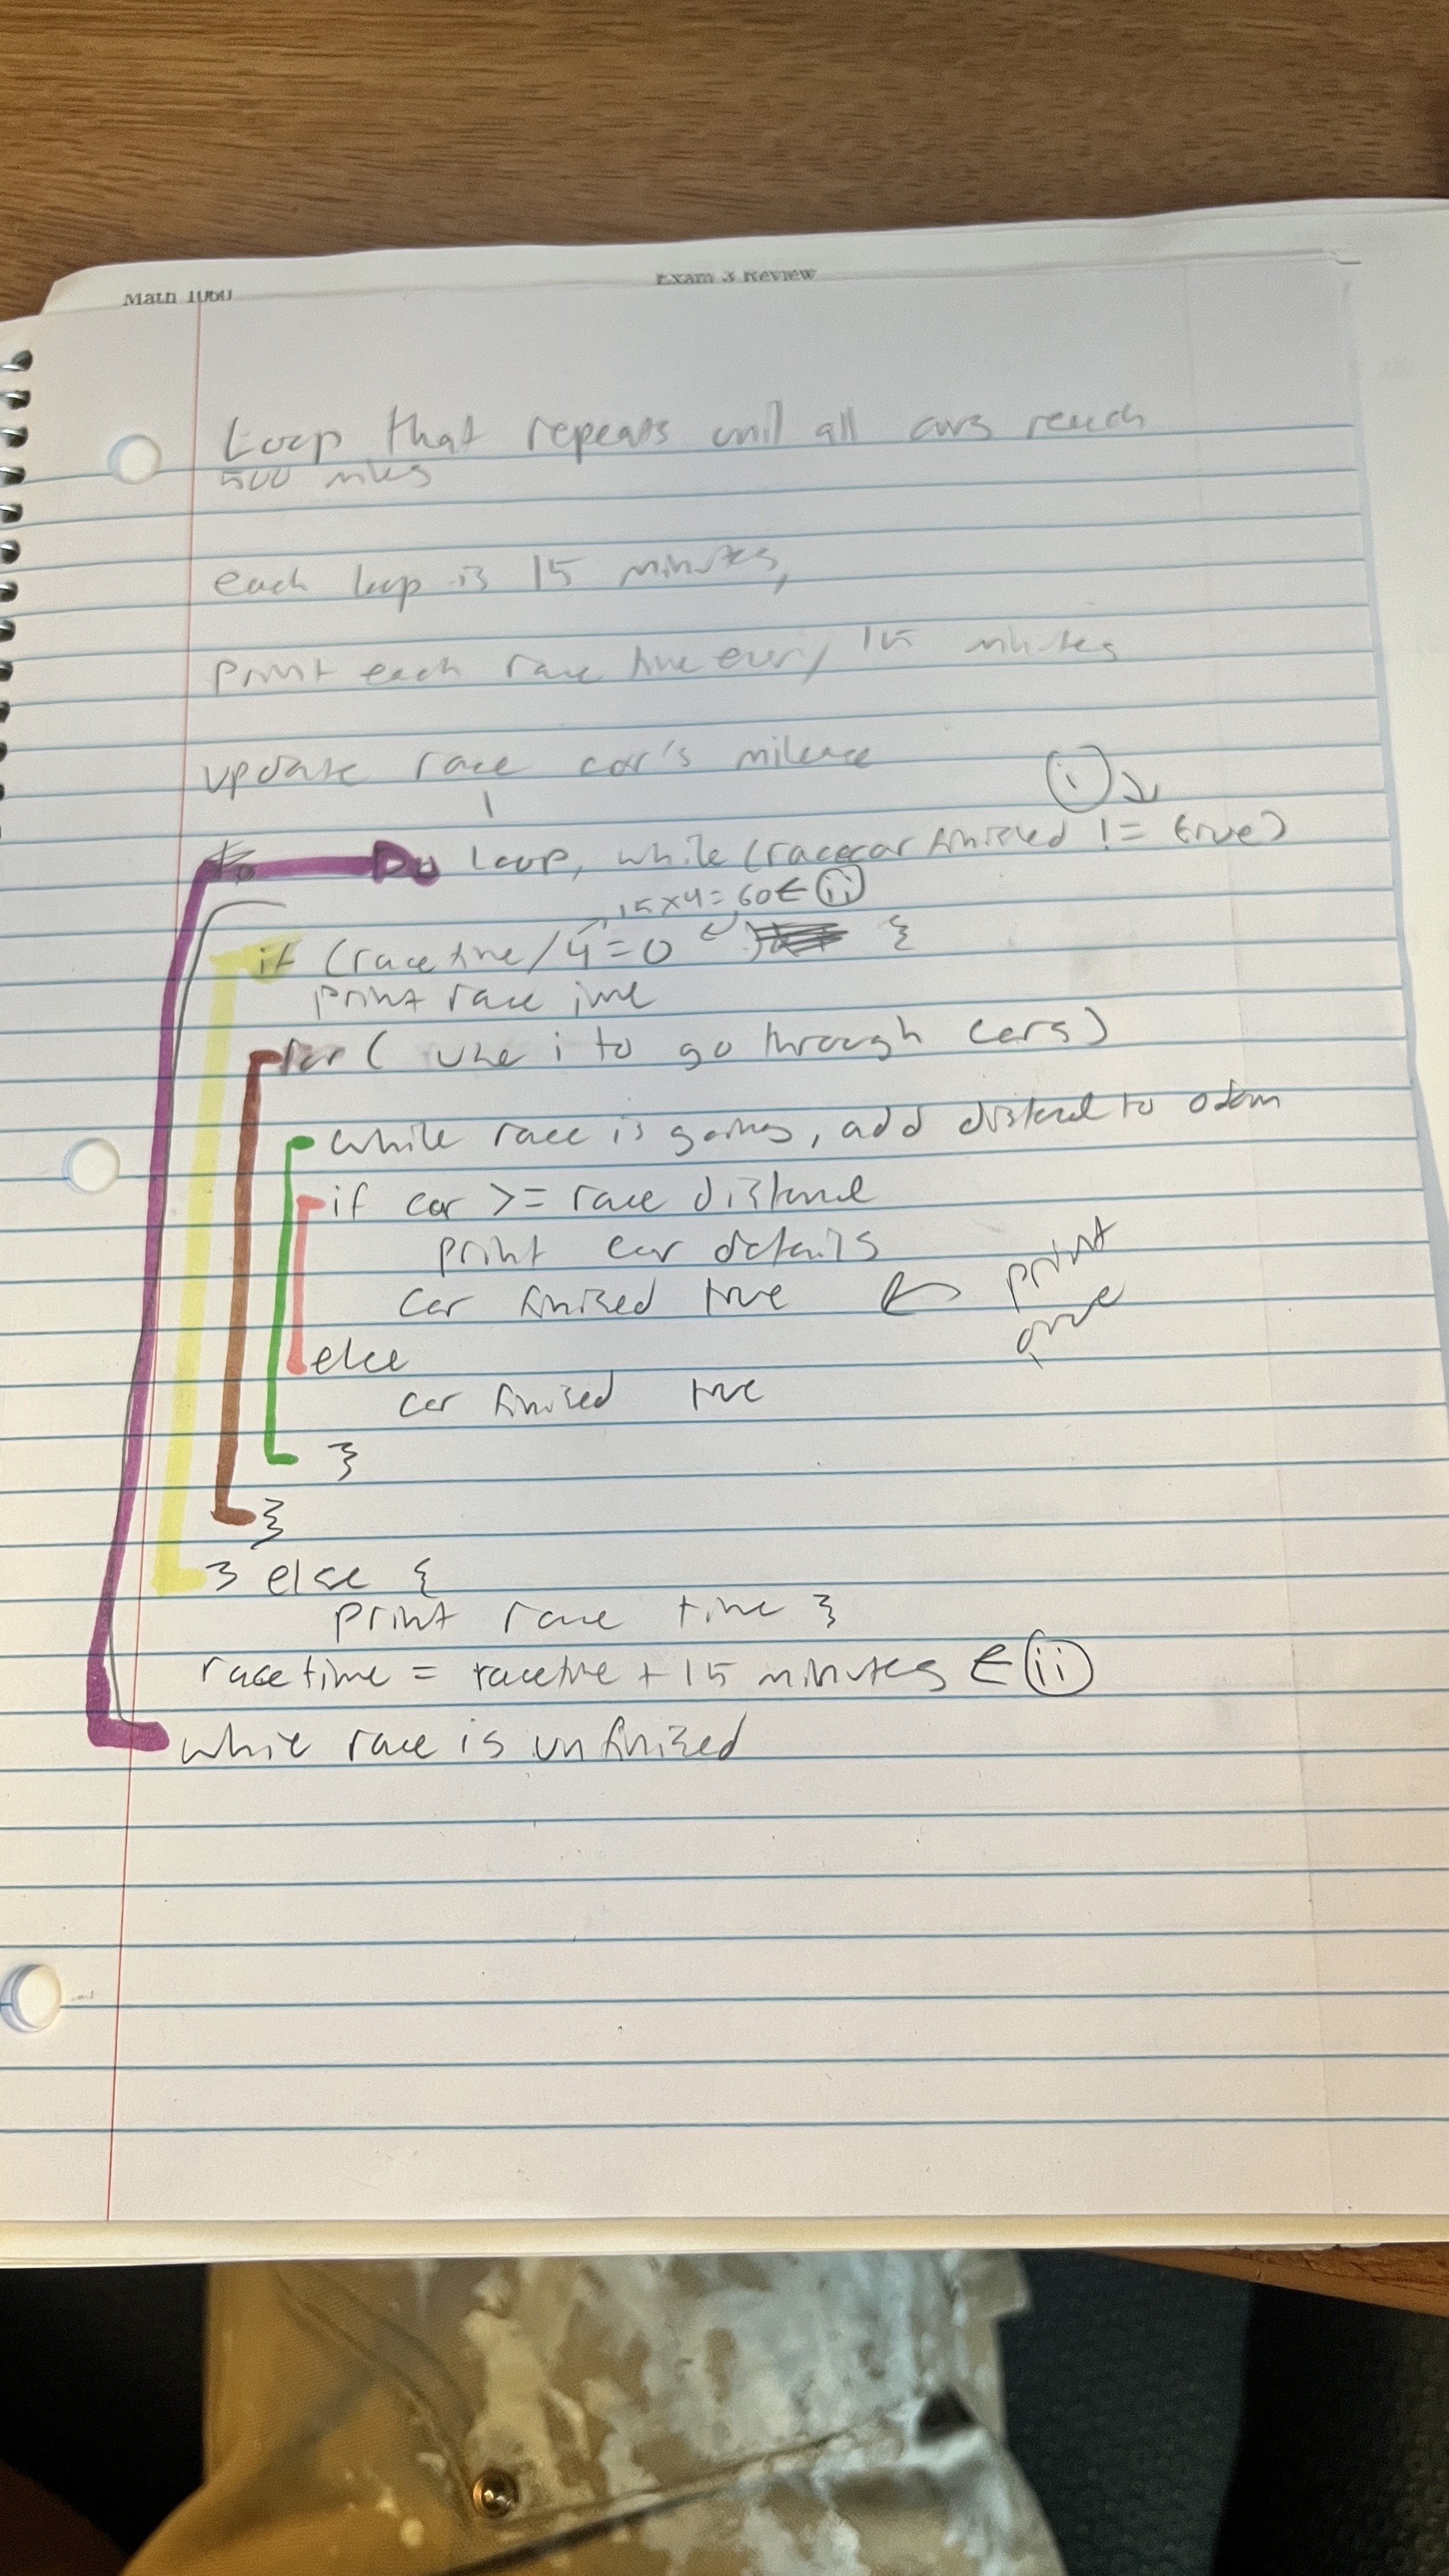 Math 1060
Exam 3 Review
Loop that repeats until all cars reach
500 miles
each loop is 15 minutes,
print each race time every 15 minutes
update race car's mileage
Do loop, while (racecar finished != true)
i
15x4=60 ← ii
if (race time/4=0 ) {
print race time
for ( use i to go through cars)
while race is going, add distance to odom
if car >= race distance
print car details
car finished true ← print
once
else
car finished true
}
}
} else {
print race time }
race time = racetime + 15 minutes ← ii
while race is unfinished